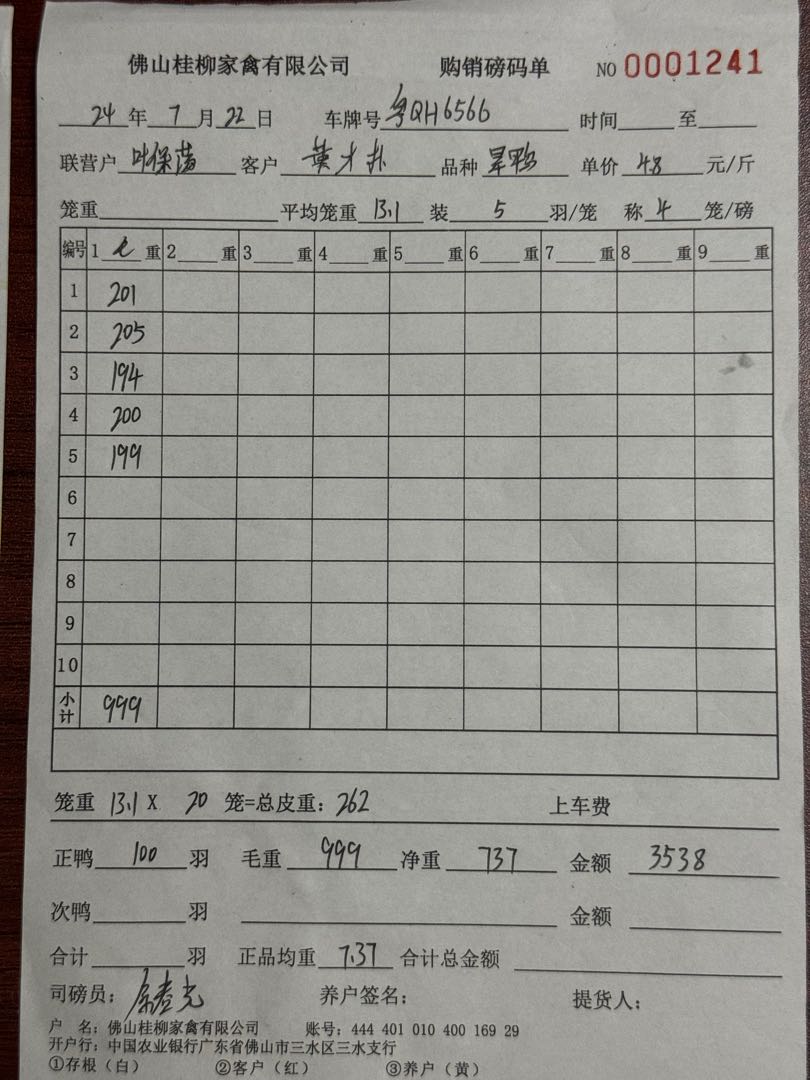 佛山桂柳家禽有限公司 购销磅码单 NO 0001241
24年7月22日 车牌号粤QH6566 时间 至
联营户 叶保荡 客户 黄才朴 品种 旱鸭 单价 4.8 元/斤
笼重 平均笼重 13.1 装 5 羽/笼 称 4 笼/磅
编号 1 毛 重 2 重 3 重 4 重 5 重 6 重 7 重 8 重 9 重
1 201
2 205
3 194
4 200
5 199
6
7
8
9
10
小计 999
笼重 13.1 X 20 笼=总皮重: 262 上车费
正鸭 100 羽 毛重 999 净重 737 金额 3538
次鸭 羽 金额
合计 羽 正品均重 7.37 合计总金额
司磅员: 养户签名: 提货人:
户 名: 佛山桂柳家禽有限公司 账号: 444 401 010 400 169 29
开户行: 中国农业银行广东省佛山市三水区三水支行
①存根(白) ②客户(红) ③养户(黄)